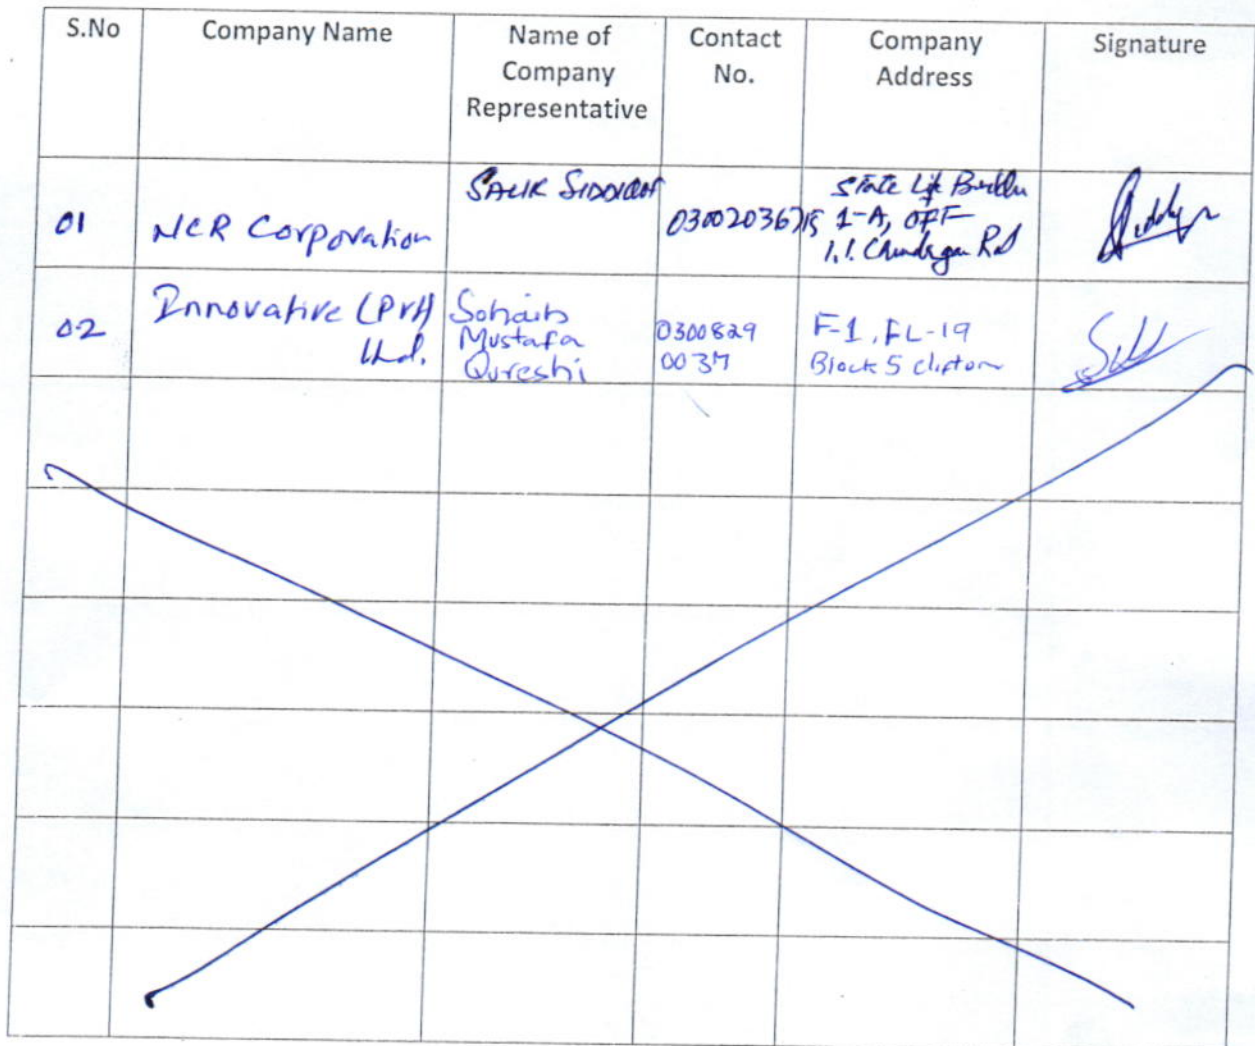 S.No
Company Name
Name of
Company
Representative
Contact
No.
Company
Address
Signature
01
NCR Corporation
SALIK SIDDIQUI
03002036715
State Life
1-A, OFF
I.I. Chundrigar Rd
02
Innovative (Pvt)
Ltd.
Sohaib
Mustafa
Qureshi
0300829
0037
F-1, FL-19
Block 5 clifton